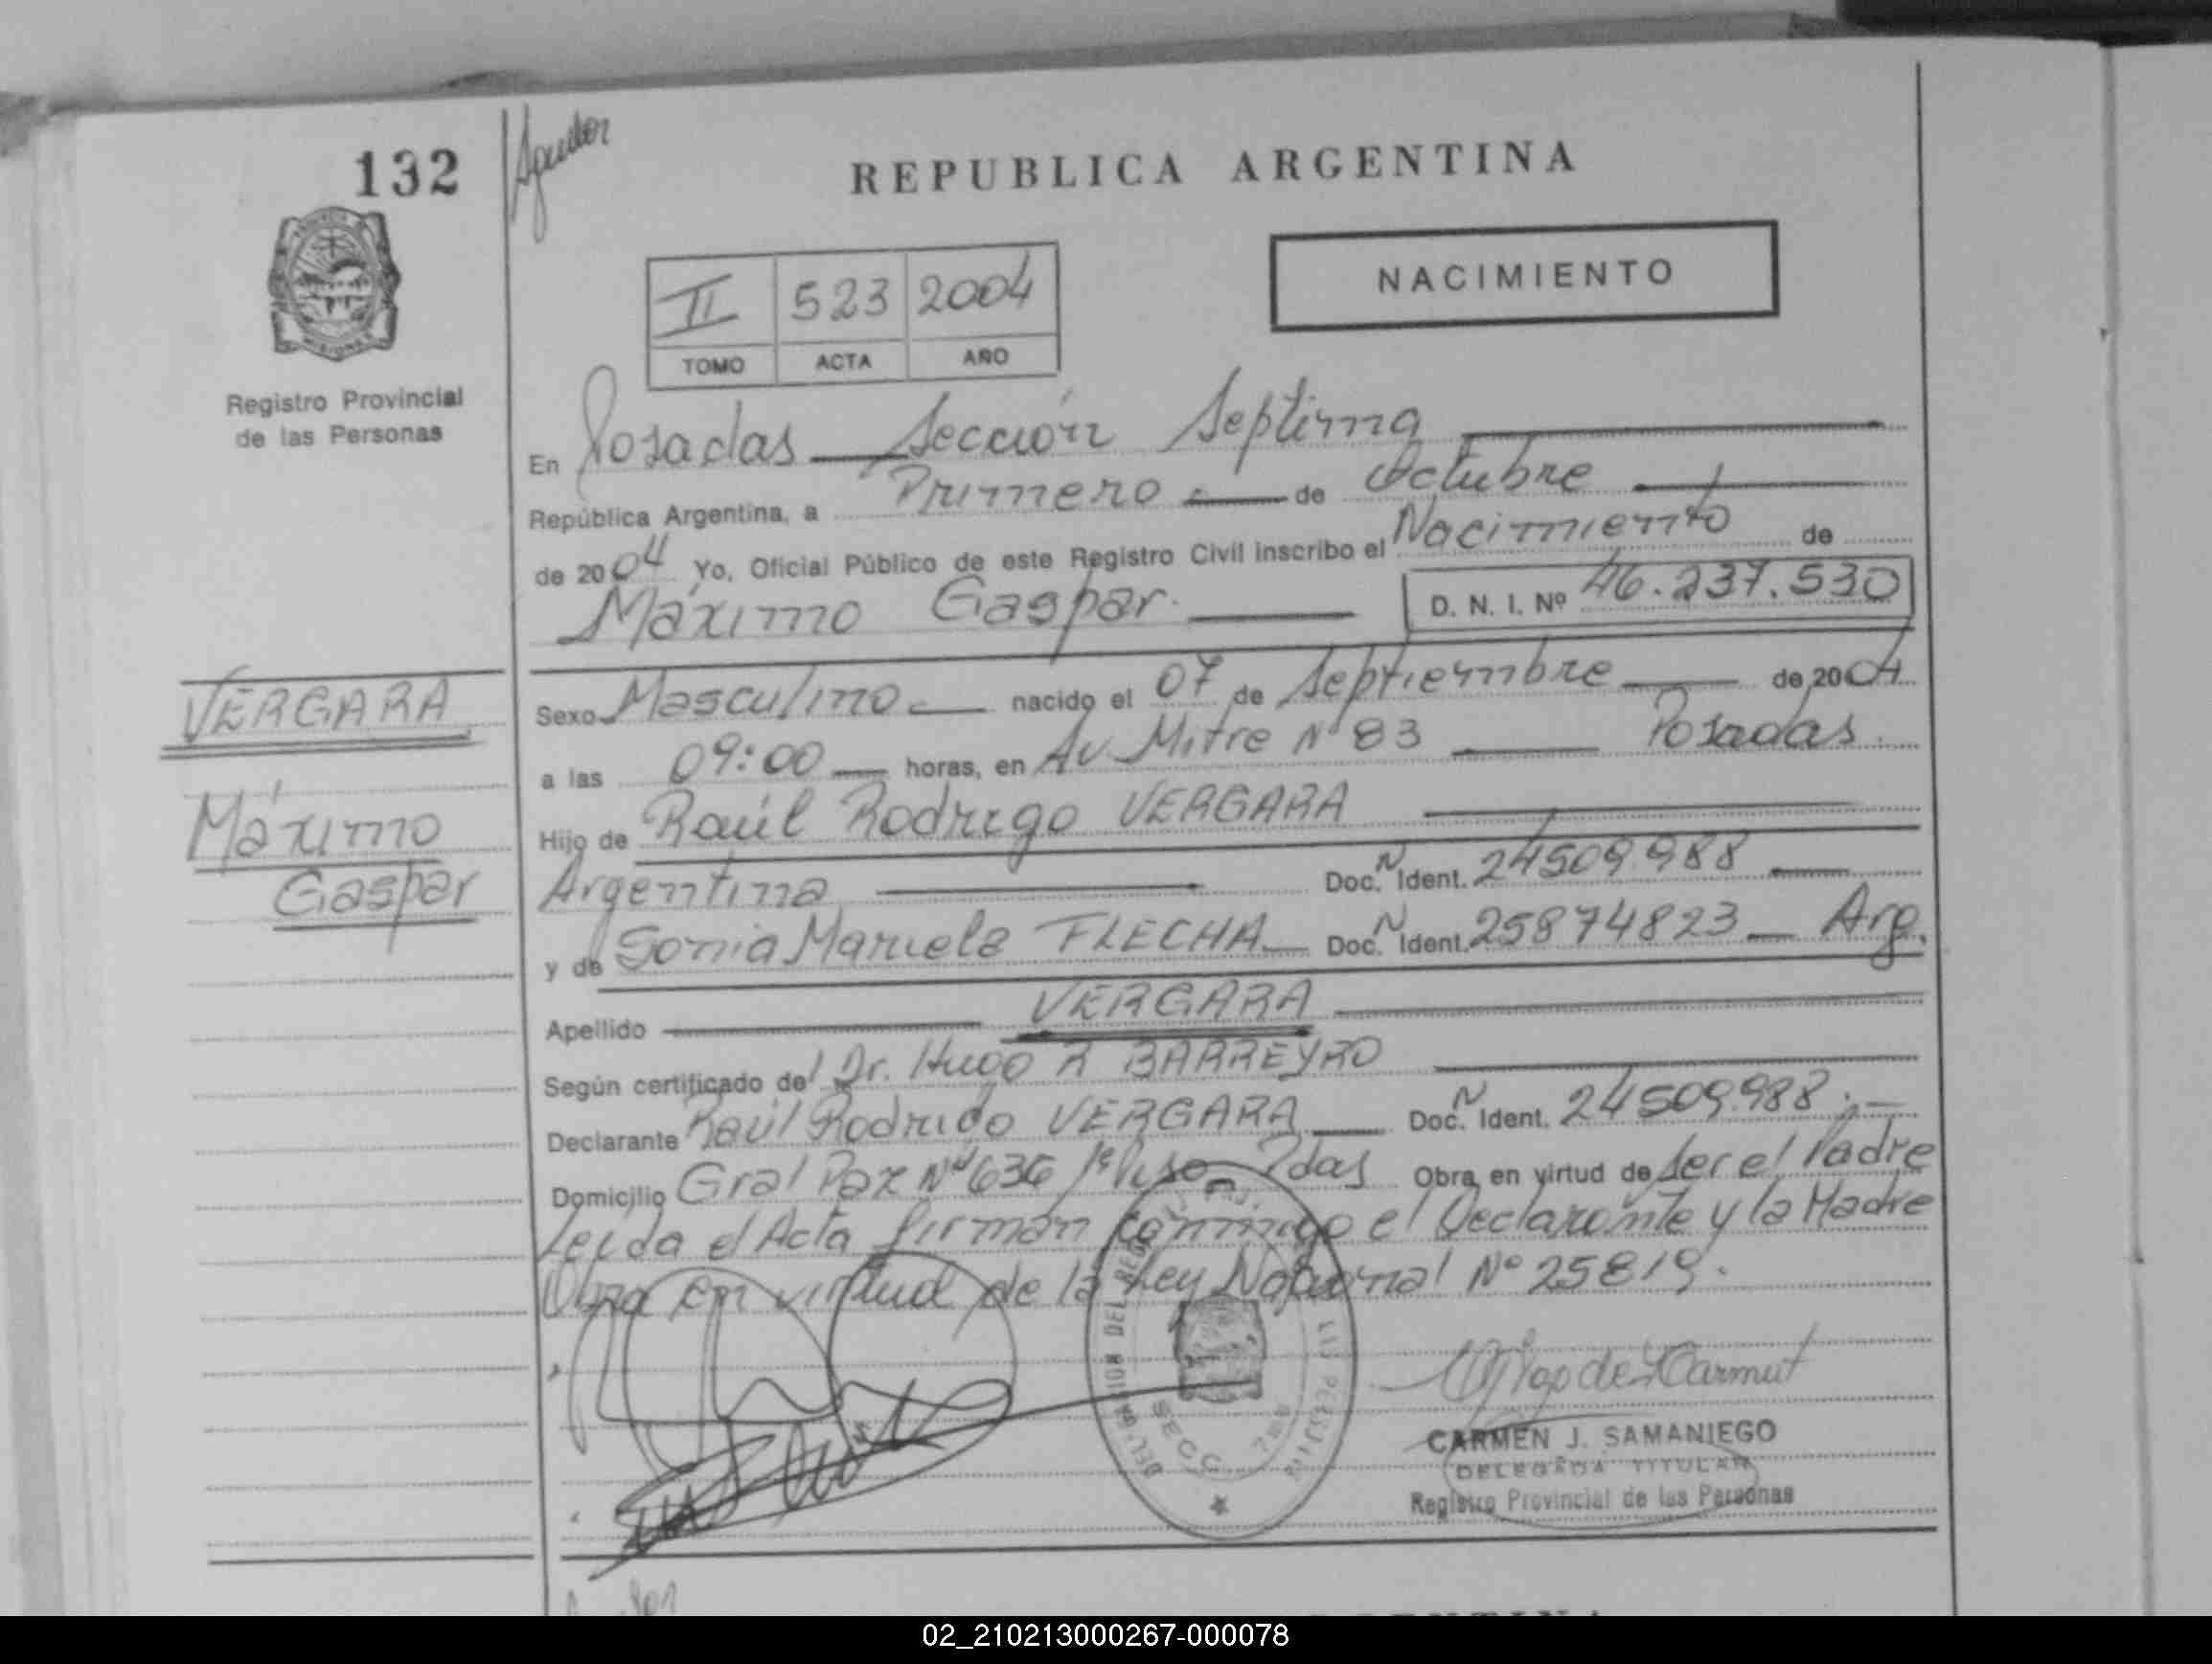 132
Aguilar
REPUBLICA ARGENTINA
NACIMIENTO
II 523 2004
TOMO ACTA AÑO
Registro Provincial
de las Personas
En Posadas Sección Septima
República Argentina, a Primero de Octubre
de 2004 Yo, Oficial Público de este Registro Civil inscribo el Nacimiento de
Máximo Gaspar. D. N. I. Nº 46.237.530
VERGARA
Máximo
Gaspar
Sexo Masculino nacido el 07 de Septiembre de 2004
a las 09:00 horas, en Av. Mitre Nº 83 Posadas.
Hijo de Raúl Rodrigo VERGARA
Argentina Doc. N Ident. 24509.988
y de Sonia Mariela FLECHA Doc. N Ident. 25874823 Arg.
Apellido VERGARA
Según certificado del Dr. Hugo R BARREYRO
Declarante Raúl Rodrigo VERGARA Doc. N Ident. 24509.988.
Domicilio Gral Paz Nº 636 1º Piso Pdas Obra en virtud de ser el Padre
Leída el Acta firman conmigo el Declarante y la Madre
Obra en virtud de la Ley Nacional Nº 25819.
SECC 7ma
CARMEN J. SAMANIEGO
DELEGADA TITULAR
Registro Provincial de las Personas
02_210213000267-000078